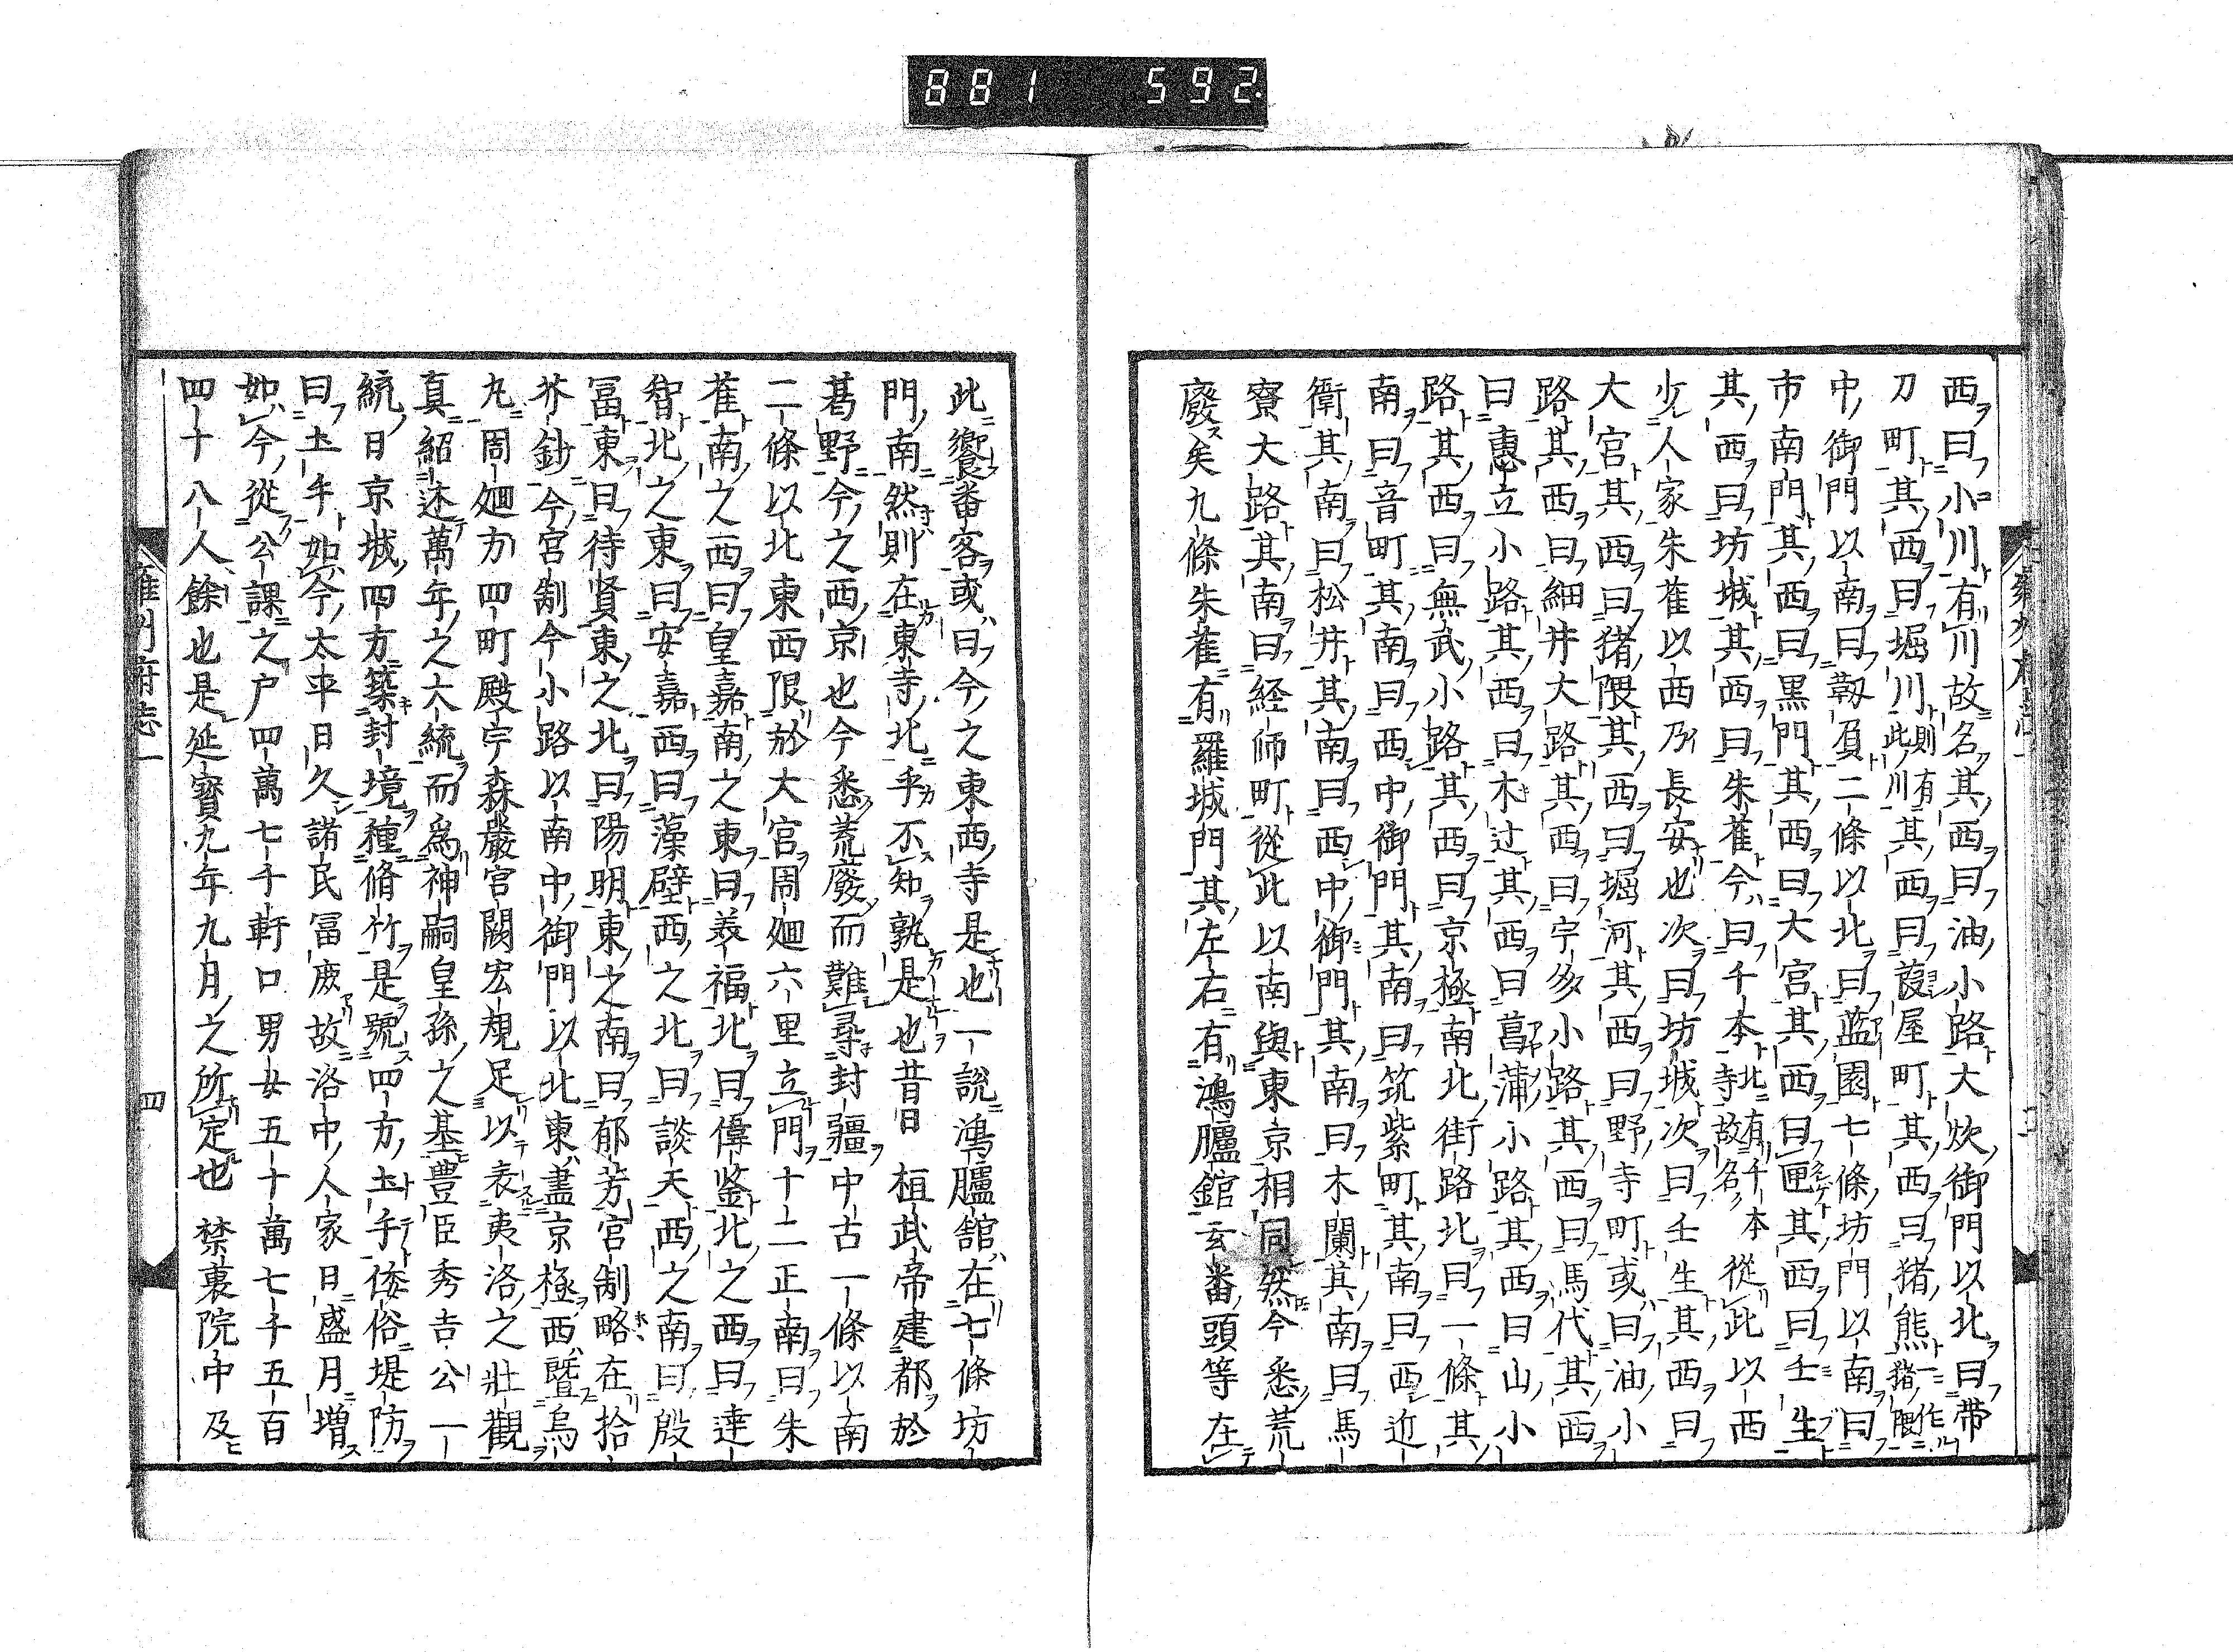 881 592.
西曰小川有川故名其西曰油小路大炊御門以北曰帶
刀町其西曰堀川則有此川其西曰葭屋町其西曰猪熊一作猪隈
中御門以南曰靱負二條以北曰藍園七條坊門以南曰
市南門其西曰黒門其西曰大宮其西曰匣其西曰壬生
其西曰坊城其西曰朱雀今曰千本北有千本寺故名從此以西
少人家朱雀以西乃長安也次曰坊城次曰壬生其西曰
大宮其西曰猪隈其西曰堀河其西曰野寺町或曰油小
路其西曰細井大路其西曰宇多小路其西曰馬代其西
曰惠立小路其西曰木辻其西曰菖蒲小路其西曰山小
路其西曰無武小路其西曰京極南北街路北曰一條其
南曰音町其南曰西中御門其南曰筑紫町其南曰西近
衛其南曰松井其南曰西中御門其南曰木蘭其南曰馬
寮大路其南曰経師町從此以南與東京相同然今悉荒
廢矣九條朱雀有羅城門其左右有鴻臚館玄蕃頭等在
此饗番客或曰今之東西寺是也一說鴻臚舘在七條坊
門南然則在東寺北乎不知孰是也昔日桓武帝建都於
葛野今之西京也今悉荒廢而難尋封疆中古一條以南
二條以北東西限於大宮周廻六里立門十二正南曰朱
雀南之西曰皇嘉南之東曰美福北曰偉鉴北之西曰達
智北之東曰安嘉西曰藻壁西之北曰談天西之南曰殷
冨東曰待賢東之北曰陽明東之南曰郁芳宮制略在拾
芥鈔今宮制今小路以南中御門以北東盡京極西曁烏
丸周廻方四町殿宇森嚴宮闕宏規足以表夷洛之壯觀
真紹述萬年之大統而爲神嗣皇孫之基豊臣秀吉公一
統日京城四方築封境種脩竹是號四方土手倭俗堤防
曰土手如今太平日久諸民冨庶故洛中人家日盛月増
如今從公課之戸四萬七千軒口男女五十萬七千五百
四十八人餘也是延寶九年九月之所定也 禁裏院中及
雍州府志一 四